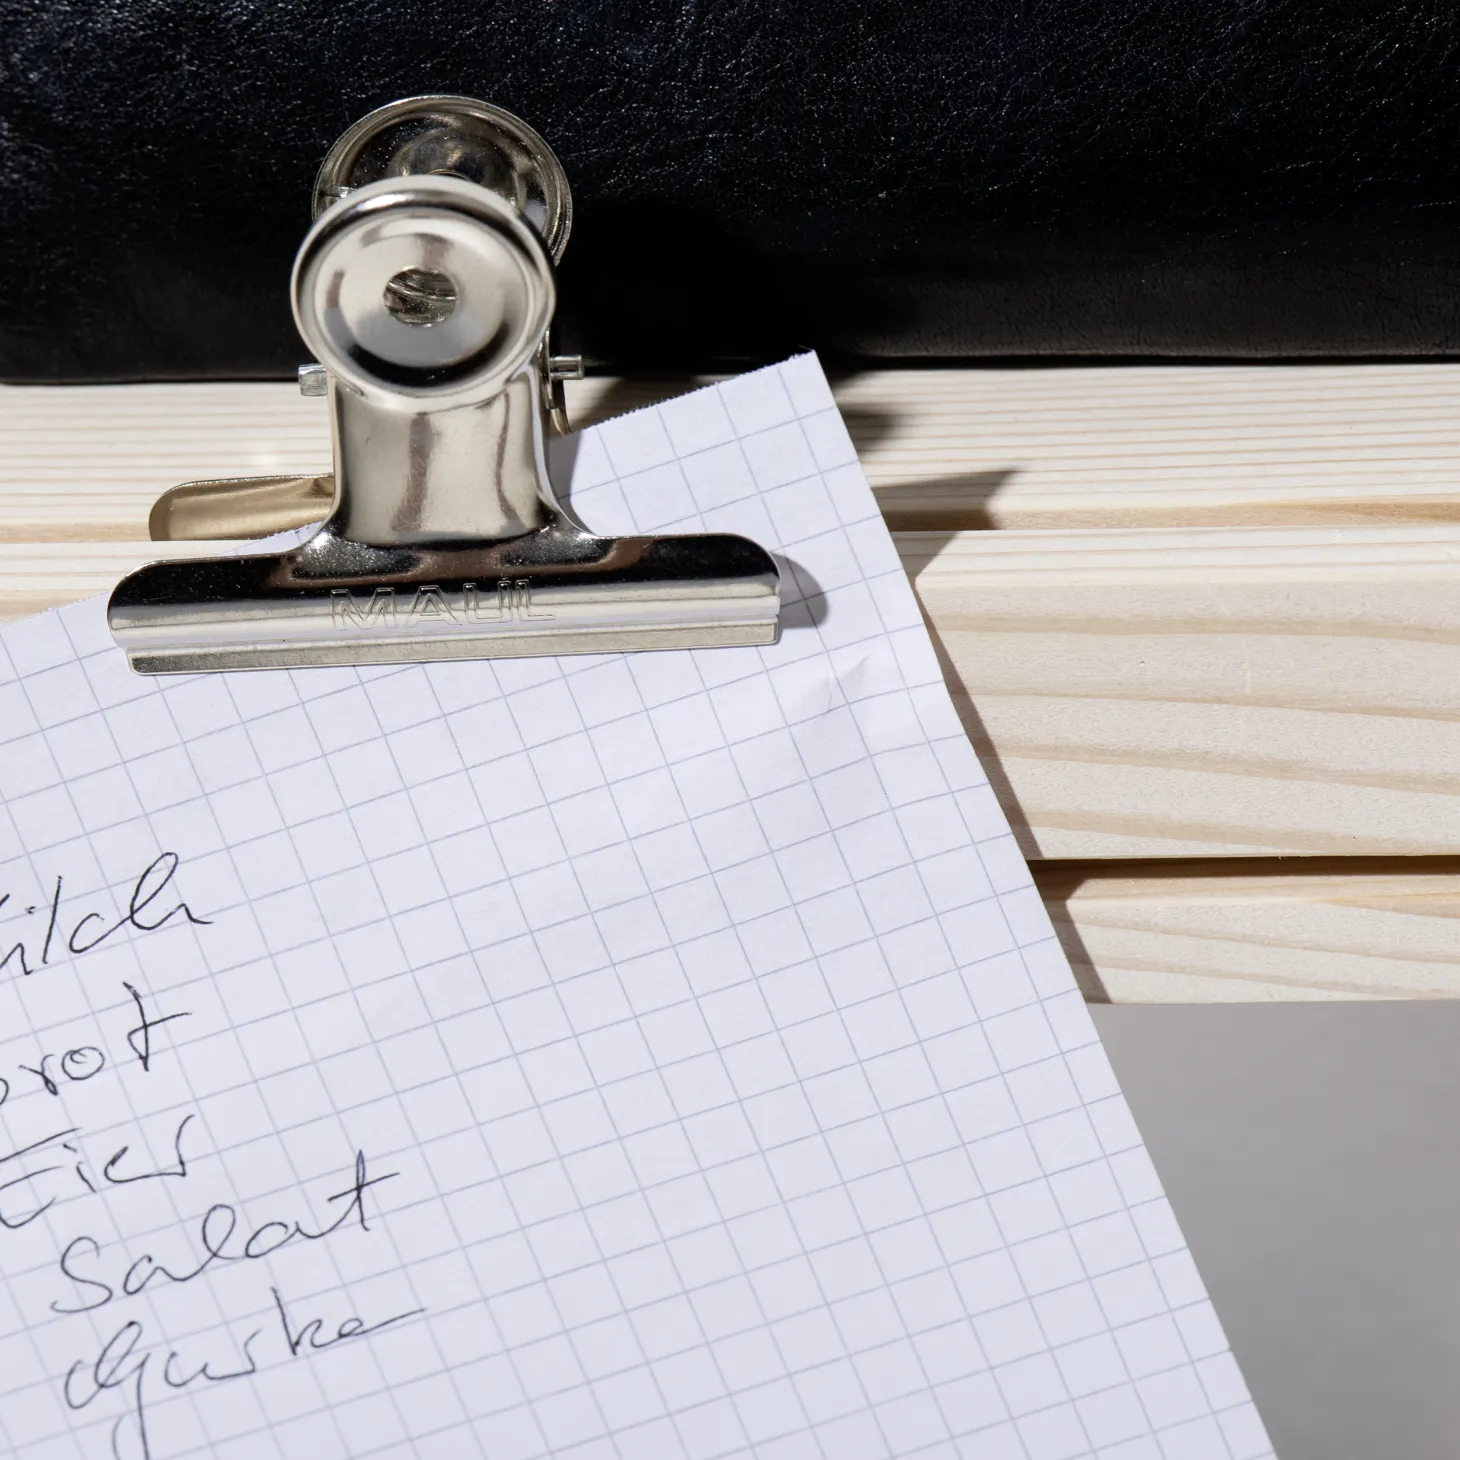 MAUL
Milch
Brot
Eier
Salat
Gurke